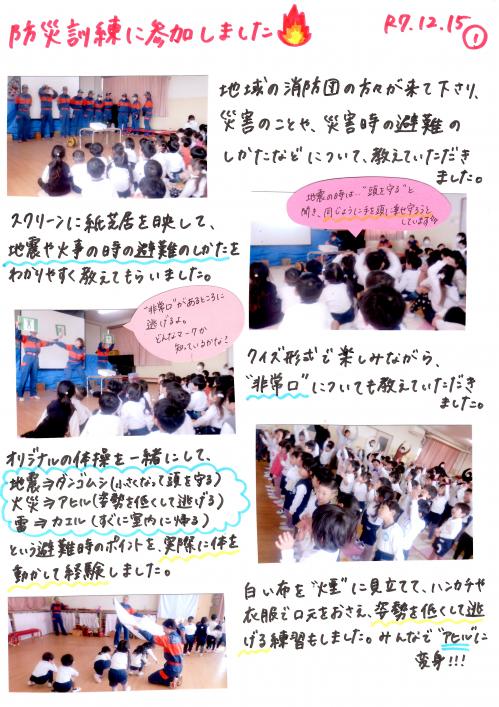 防災訓練に参加しました
R7.12.15
①
地域の消防団の方々が来て下さり、
災害のことや、災害時の避難の
しかたなどについて、教えていただき
ました。
スクリーンに紙芝居を映して、
地震や火事の時の避難のしかたを
わかりやすく教えてもらいました。
地震の時は…"頭を守る"と
聞き、同じように手を頭に乗せ守ろうと
しています
"非常口"があるところに
逃げるよ。
どんなマークか
知っているかな？
クイズ形式で楽しみながら、
"非常口"についても教えていただき
ました。
オリジナルの体操を一緒にして、
地震⇒ダンゴムシ(小さくなって頭を守る)
火災⇒アヒル(姿勢を低くして逃げる)
雷⇒カエル(すぐに室内に帰る)
という避難時のポイントを、実際に体を
動かして経験しました。
白い布を"煙"に見立てて、ハンカチや
衣服で口元をおさえ、姿勢を低くして逃
げる練習もしました。みんなで"アヒル"に
変身!!!